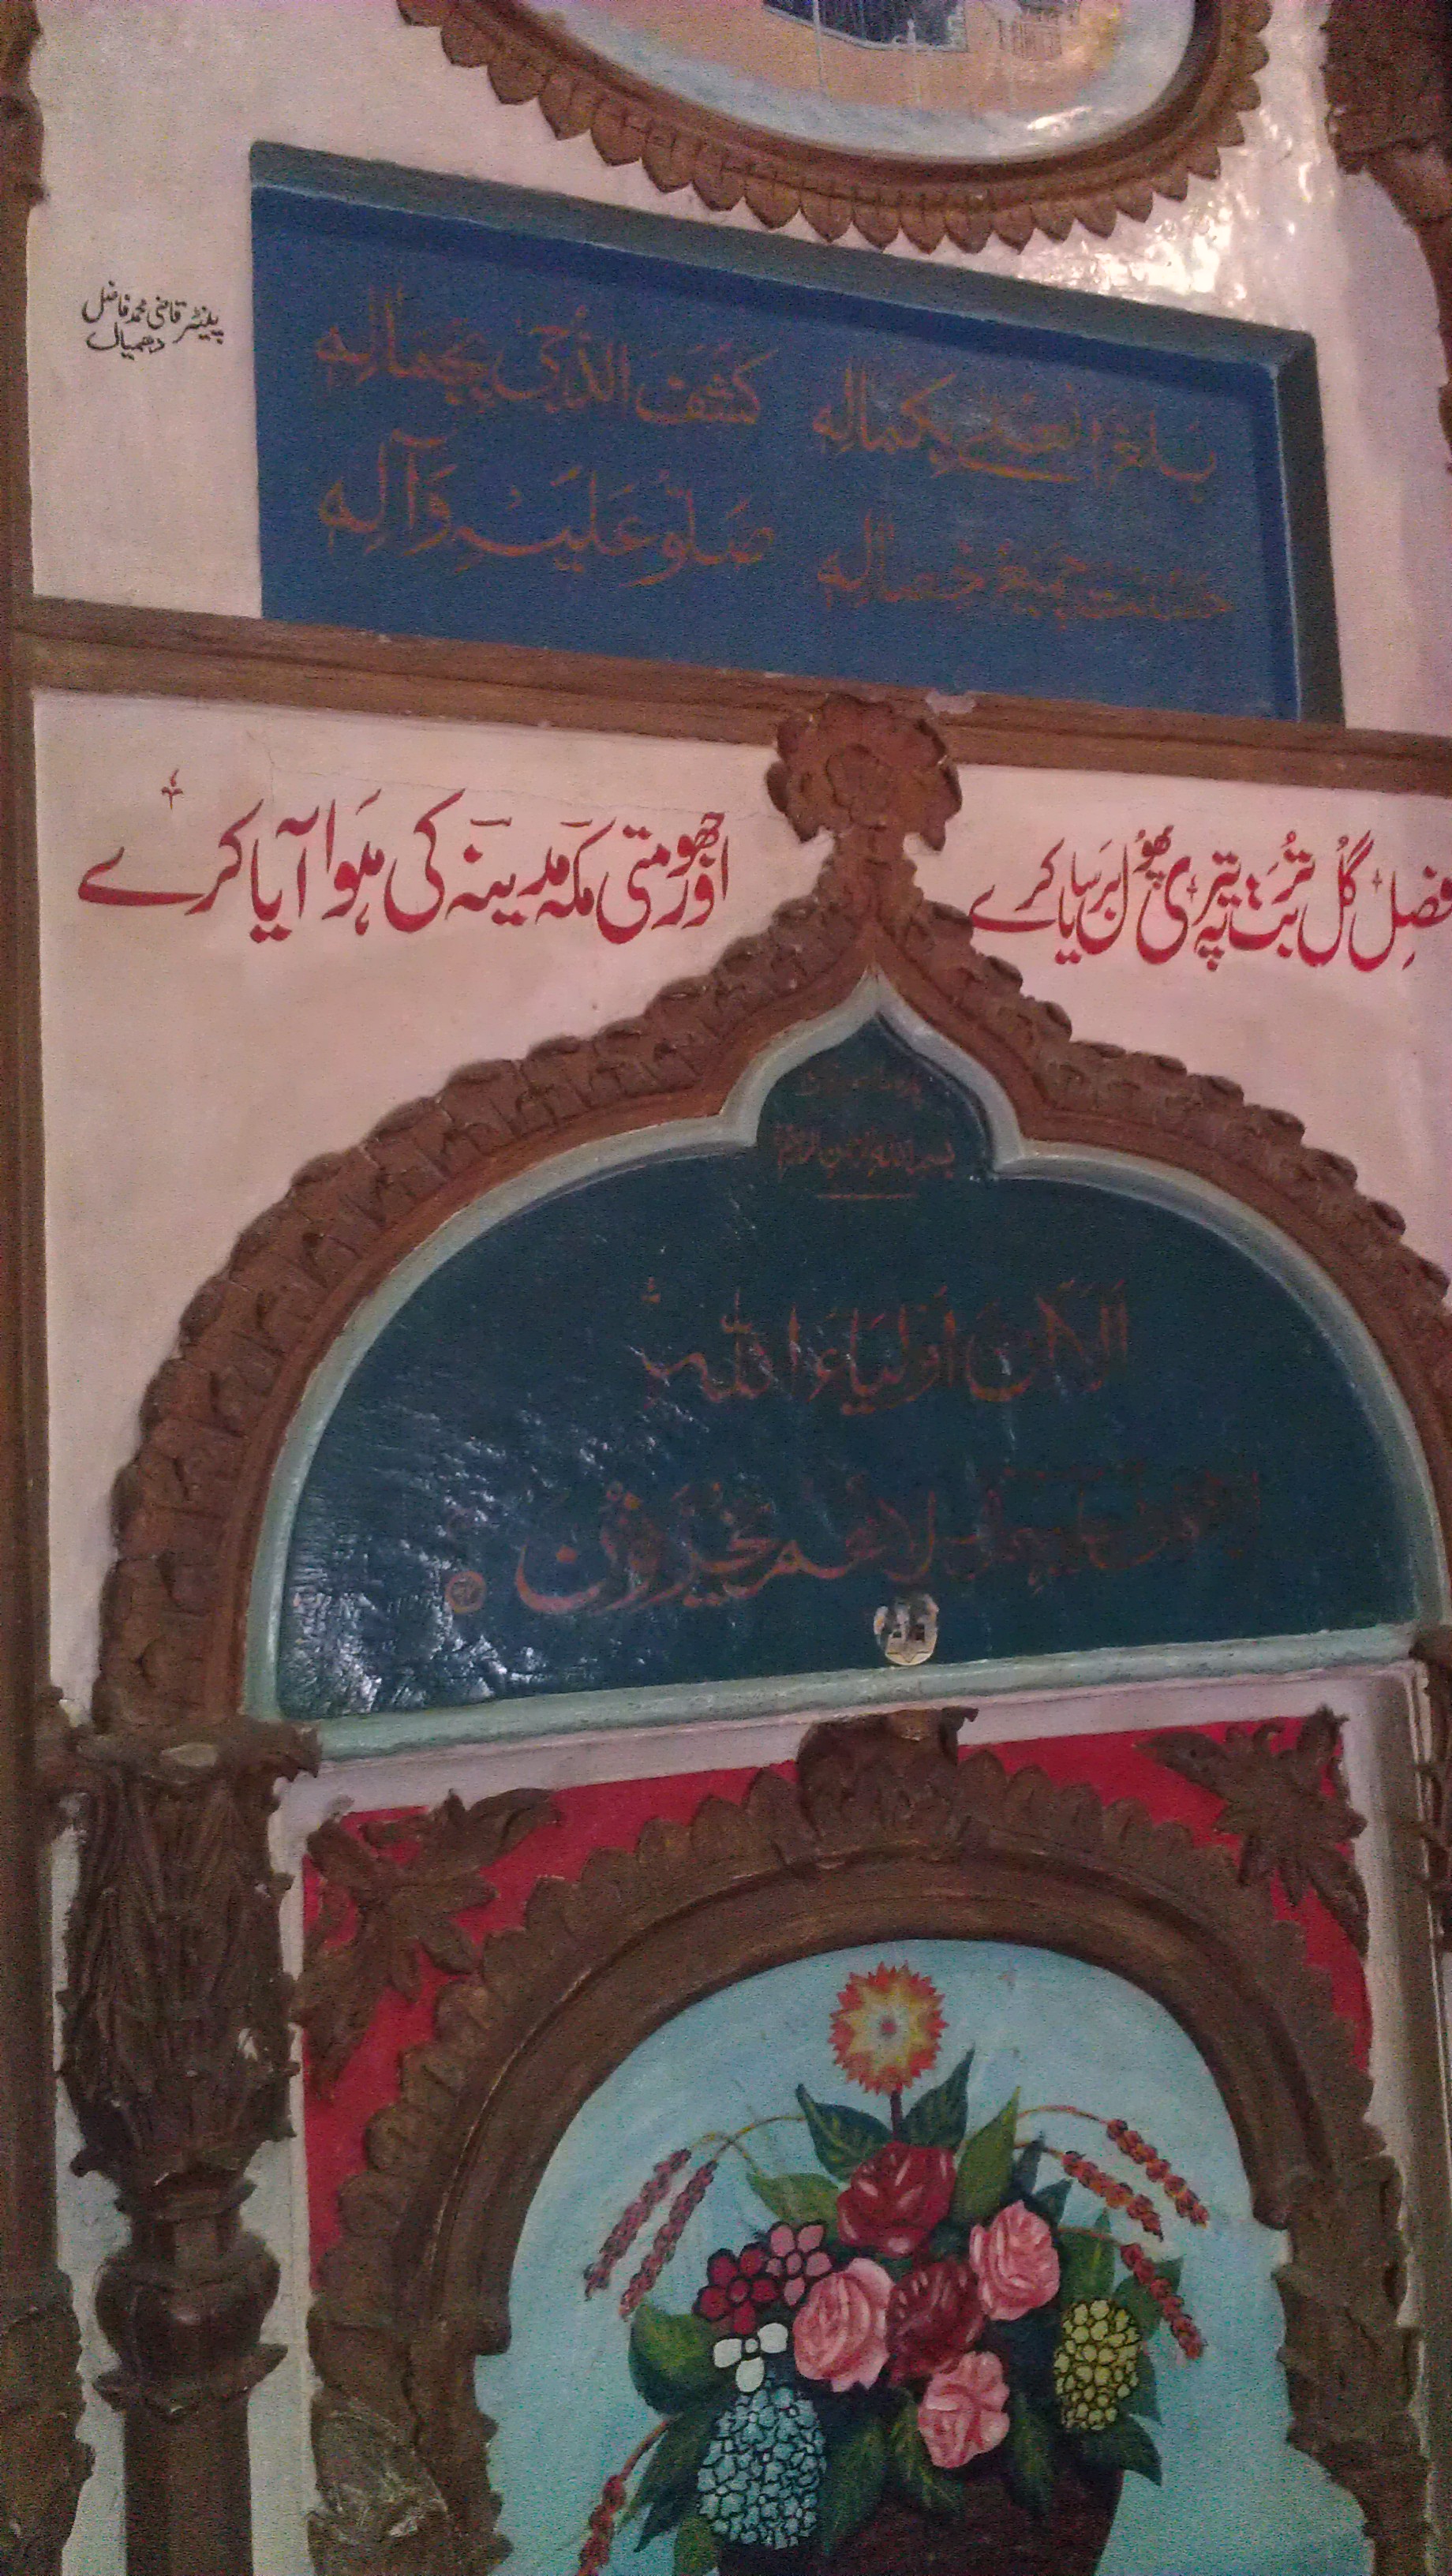 پینٹر قاضی محمد فاضل
دھمیال
بَلَغَ العُلےٰ بِکَمَالِہٖ کَشَفَ الدُّجیٰ بِجَمَالِہٖ
حَسُنَتْ جَمِیْعُ خِصَالِہٖ صَلُّوْ عَلَیْہِ وَآلِہٖ
فصلِ گُل تُربَت پہ تیری پھُول برسایا کرے
اور جھومتی مکہ مدینہ کی ہوا آیا کرے
بسم اللہ الرحمن الرحیم
اَلَا اِنَّ اَوْلِیَاءَ اللّٰہِ
لا خوف علیہم ولا ھم یَحْزَنُوْنَ